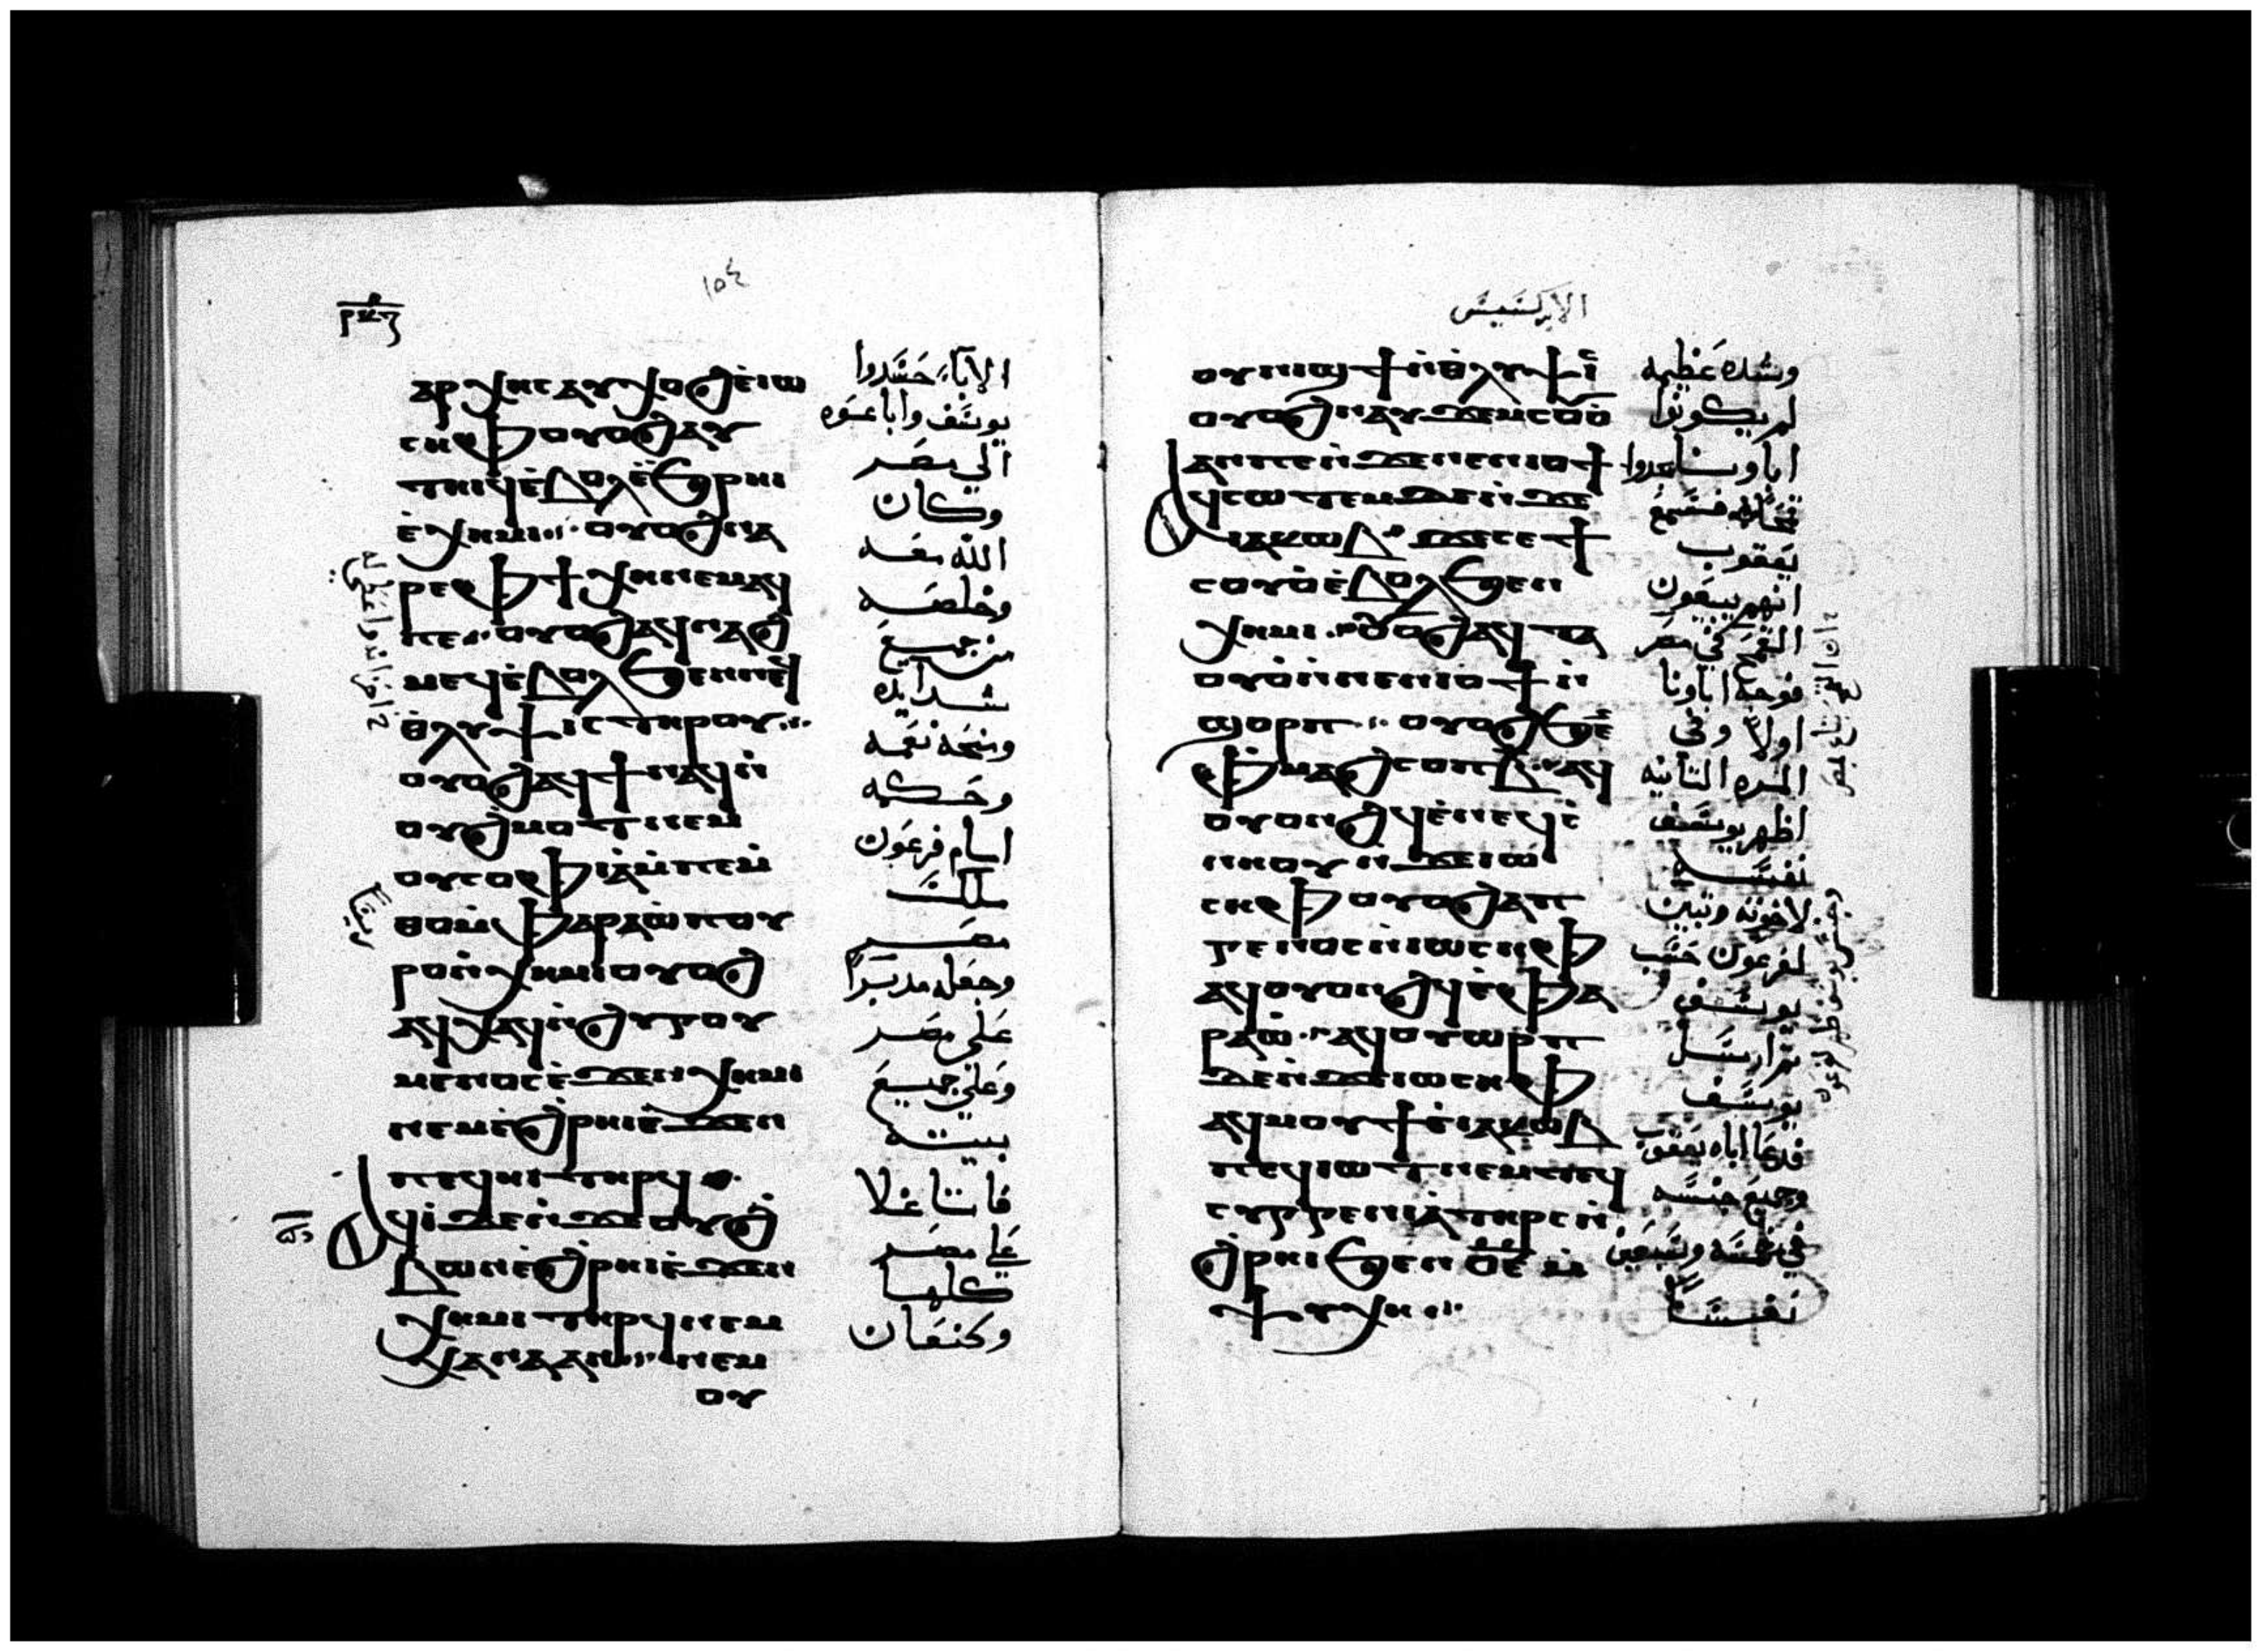 ⲣⲕⲍ
١٥٤
ⲁⲣⲭⲏⲥ ⲁⲩⲭⲟϩ ⲉ̀ⲓⲱ
ⲥⲏⲫ ⲟⲩⲟϩ ⲁⲩ
ⲧⲏⲓϥ ⲉ̀ⲃⲟⲗ ⲉ̀ϧⲣⲏⲓ
ⲉ̀ⲭⲏⲙⲓ ⲟⲩⲟϩ ⲛⲁ
ⲣⲉ ⲫϯ ⲭⲏ ⲛⲉⲙⲁϥ
ⲡⲉ ⲟⲩⲟϩ ⲁϥⲛⲁϩ
ⲙⲉϥ ⲉ̀ⲃⲟⲗ ϧⲉⲛ ⲛⲉϥ
ⲑ̀ⲗⲩⲯⲓⲥ ⲧⲏⲣⲟⲩ
ⲟⲩⲟϩ ⲁϥϯ ⲛⲁϥ ⲛ̀
ⲟⲩϩ̀ⲙⲟⲧ ⲛⲉⲙ
ⲟⲩⲥⲟⲫⲓⲁ ⲙ̀ⲡⲉⲙ̀
ⲑⲟ ⲙ̀ⲫⲁⲣⲁⲱ̀ ⲡⲟⲩ
ⲣⲟ ⲛ̀ⲭⲏⲙⲓ ⲟⲩⲟϩ
ⲁϥⲭⲁϥ ⲛ̀ϩⲩⲅⲟⲩ
ⲙⲉⲛⲟⲥ ⲉ̀ϫⲉⲛ ⲭⲏⲙⲓ
ⲛⲉⲙ ⲉ̀ϩⲣⲏⲓ ⲉ̀ϫⲉⲛ
ⲡⲉϥⲏⲓ ⲧⲏⲣϥ
ⲁϥⲓ̀ ϫⲉ ⲛ̀ϫⲉ ⲟⲩϩ̀
ⲃⲱⲛ ⲉ̀ϩⲣⲏⲓ ⲉ̀ϫⲉⲛ
ⲭⲏⲙⲓ ⲧⲏⲣϥ ⲛⲉⲙ
ⲭⲁⲛⲁⲁⲛ ⲛⲉⲙ
ⲟⲩ
الاباء حسدوا
يوسف واباعوه
الي مصر
وكان
الله معه
وخلصه
من جميع
شدايده
ومنحه نعمه
وحكمه
امام فرعون
ملك
مصر
وجعله مدبرًا
على مصر
وعلى جميع
بيته
فاتا غلا
علي مصر
كلها
وكنعان
الابركسيس
ⲟⲩⲛⲓϣϯ ⲛ̀ⲑ̀ⲗⲩⲯⲓⲥ
ⲟⲩⲟϩ ⲛⲁⲩϫⲉⲙ ⲥⲟⲩⲟ̀
ⲁⲛ ⲡⲉ ⲛ̀ϫⲉ ⲛⲉⲛⲓⲟϯ
ⲁϥⲥⲱⲧⲉⲙ ϫⲉ ⲛ̀ϫⲉ
ⲓⲁⲕⲱⲃ ϫⲉ ⲥⲉϯ
ⲥⲟⲩⲟ̀ ⲉ̀ⲃⲟⲗ ϧⲉⲛ
ⲭⲏⲙⲓ ⲟⲩⲟϩ ⲁϥⲧⲁ
ⲟⲩⲟ̀ ⲛ̀ⲛⲉⲛⲓⲟϯ ⲛ̀
ϣⲟⲣⲡ ⲟⲩⲟϩ ϧⲉⲛ
ⲫⲙⲁϩⲥⲟⲡ ⲃ̅ ⲁϥ
ⲟⲩⲟⲛϩϥ ⲉ̀ⲛⲉϥⲥ̀
ⲛⲏⲟⲩ ⲛ̀ϫⲉ ⲓⲱ
ⲥⲏⲫ ⲟⲩⲟϩ ⲁⲡ
ⲅⲉⲛⲟⲥ ⲛ̀ⲓⲱⲥⲏⲫ
ⲁϥⲟⲩⲟⲛϩϥ ⲉ̀ⲫⲁ
ⲣⲁⲱ̀ ⲁϥⲟⲩⲱⲣⲡ
ϫⲉ ⲛ̀ϫⲉ ⲓⲱⲥⲏⲫ
ⲁϥⲙⲟⲩϯ ⲉ̀ⲓⲁⲕⲱⲃ
ⲡⲉϥⲓⲱⲧ ⲛⲉⲙ ⲧⲉϥ
ⲥⲩⲅⲅⲉⲛⲓⲁ̀ ⲧⲏⲣⲥ ⲛ̀
ϩ̀ⲣⲏⲓ ϧⲉⲛ ⲟ̅ⲉ̅ ⲙ̀
ⲯⲩⲭⲏ
وشده عظيمه
لم يكونوا
اباونا يجدوا
قمحًا فسمع
يعقوب
انهم يبيعون
القمح في مصر
فوجه اباونا
اولا وفي
المره الثانيه
اظهر يوسف
نفسه
لاخوته وتبين
لفرعون حسب
يوسف
ثم ارسل
يوسف
فدعا اباه يعقوب
وجميع جنسه
في خمسه وسبعين
نفسًا